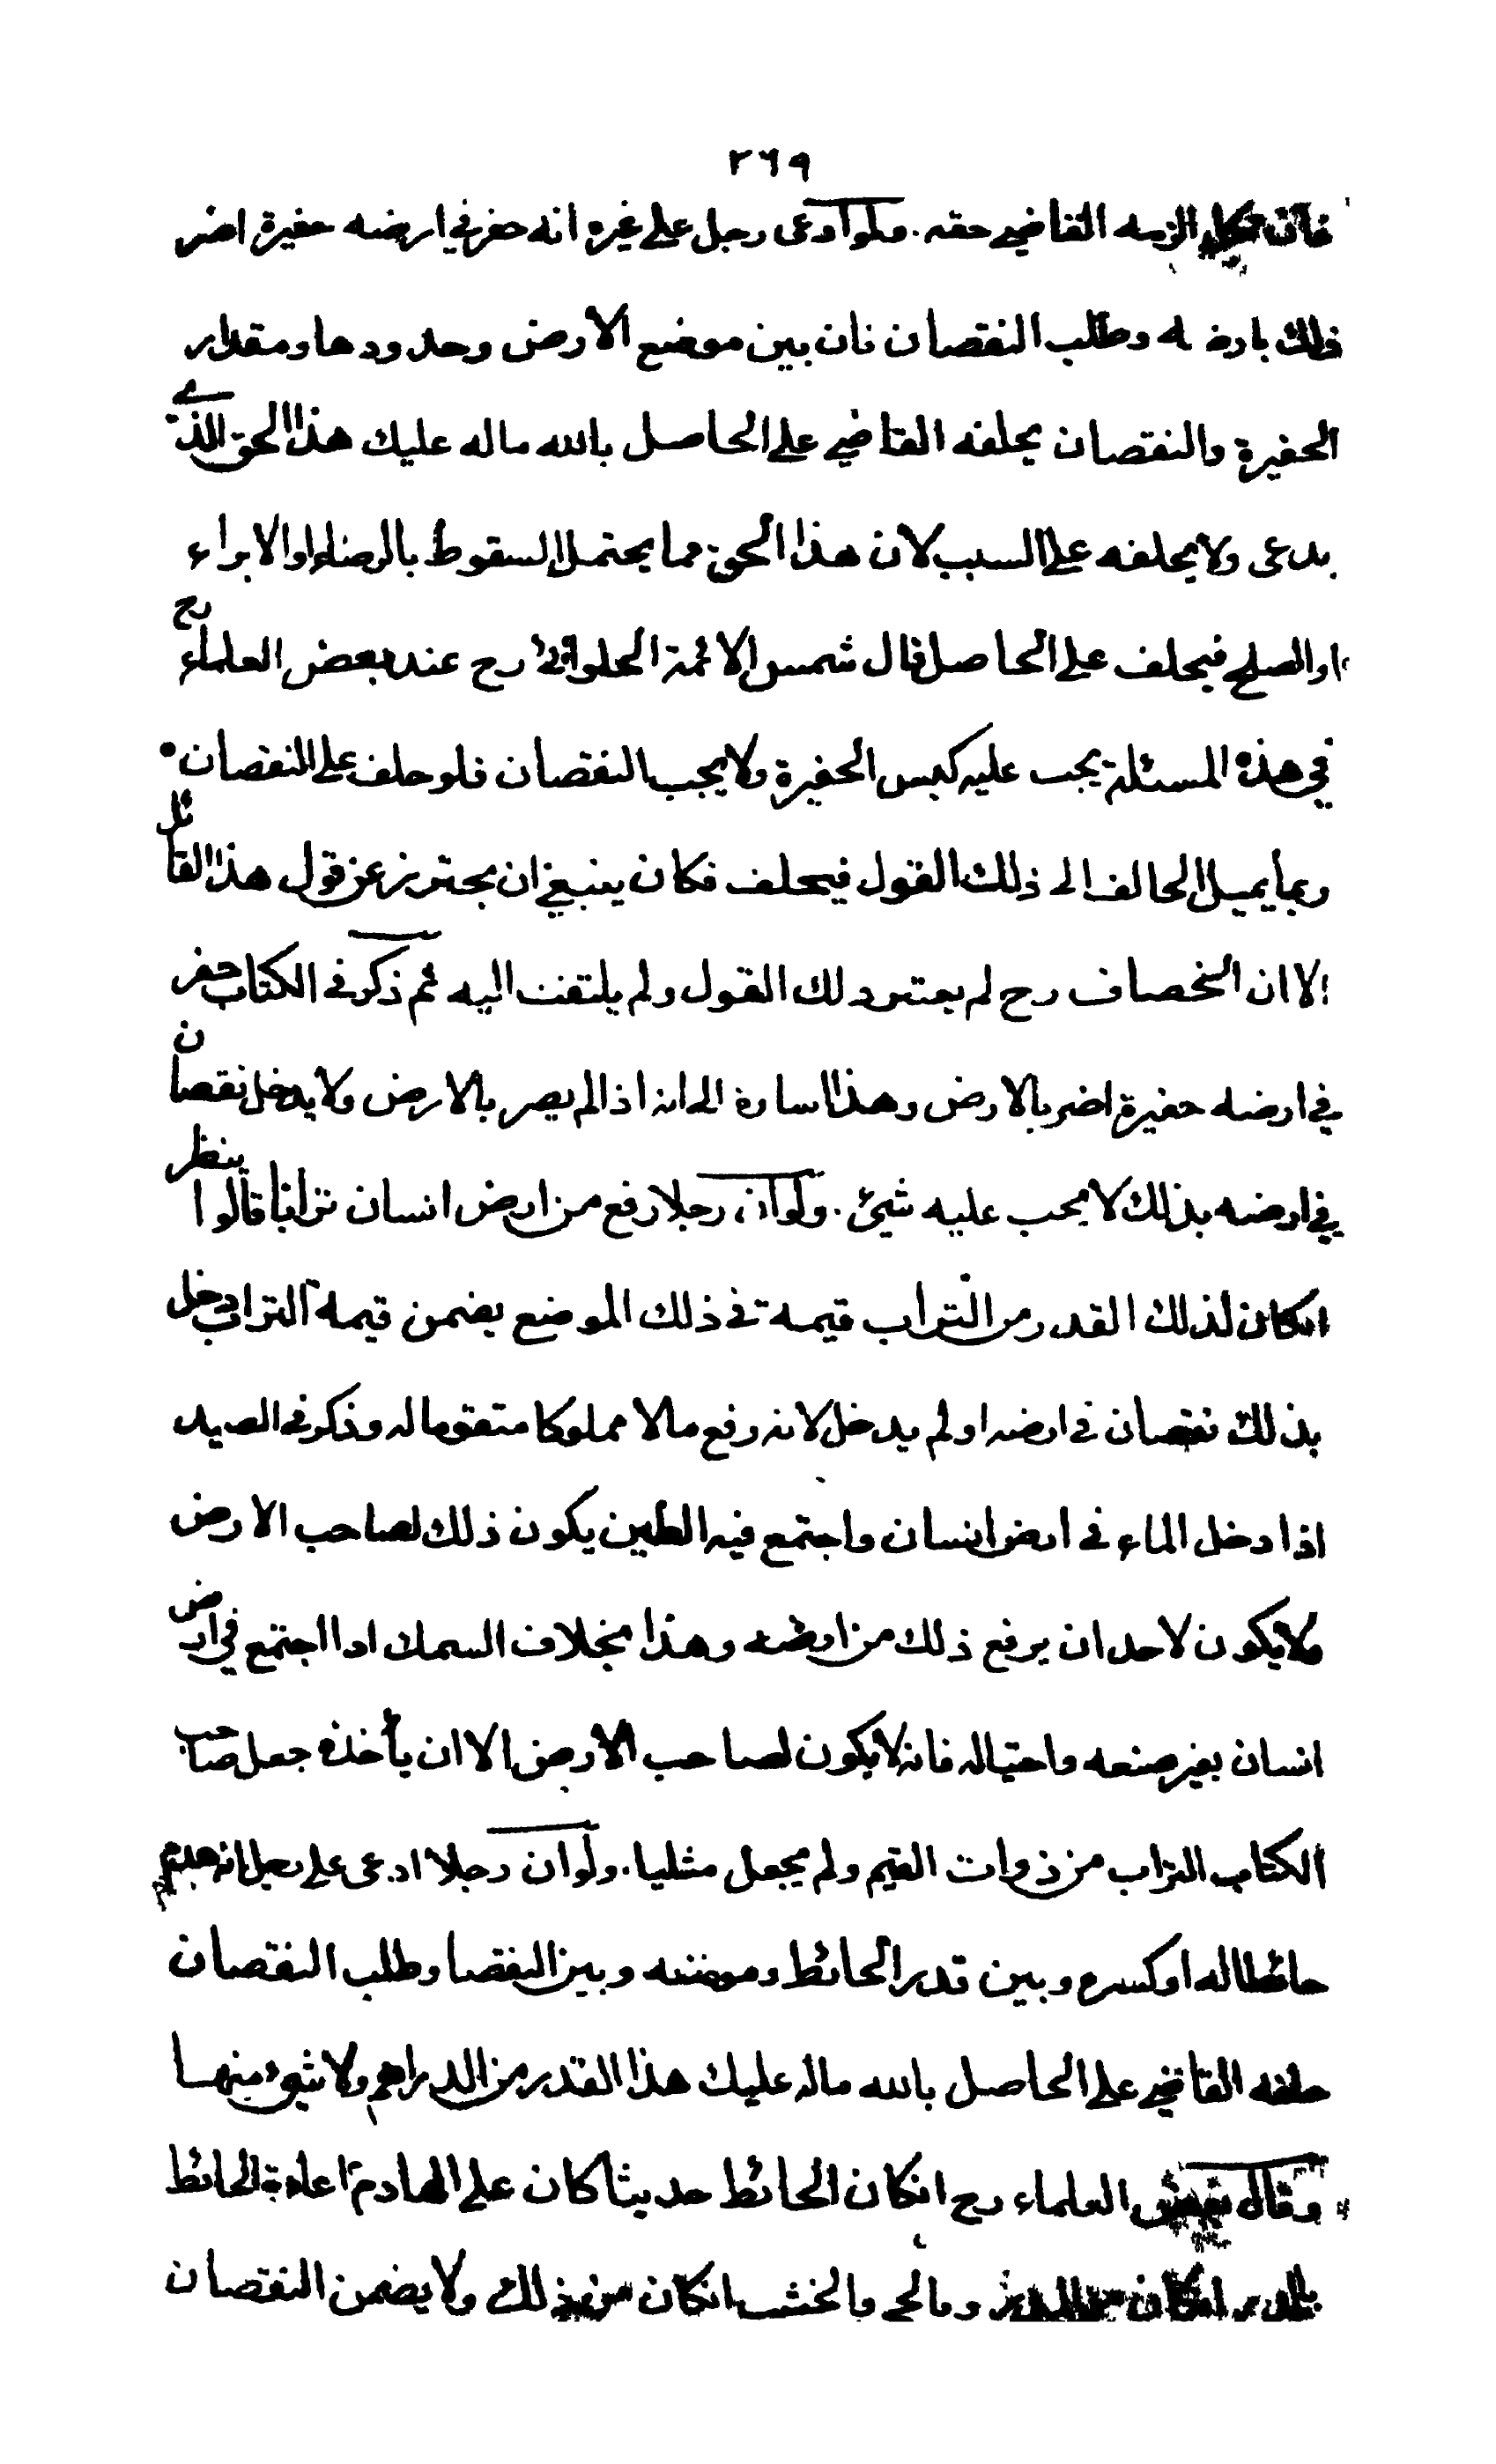 ٢٦٩
فان نكل الزمه القاضي حقه. ولوادعى رجل على غيره انه حفر في ارضه حفيرة اضر
ذلك بارضه وطلب النقصان فان بين موضع الارض وحدودها ومقدار
الحفيرة والنقصان يحلفه القاضي على الحاصل بالله ماله عليك هذا الحق الذي
يدعى ولا يحلفه على السبب لان هذا الحق مما يحتمل السقوط بالرضاء او الابراء
او الصلح فيحلف على الحاصل قال شمس الائمة الحلوائي رح عند بعض العلماء رح
في هذه المسئلة يجب عليه كبس الحفيرة ولا يجب النقصان فلو حلف على النقصان
ربما يميل الحالف الى ذلك القول فيحلف فكان ينبغي ان يحترز عن قول هذا القائل
الا ان الخصاف رح لم يعتبر ذلك القول ولم يلتفت اليه ثم ذكر في الكتاب حفر
في ارضه حفيرة اضر بالارض وهذا اشارة الى انه اذا لم يضر بالارض ولا يدخل نقصان
في ارضه بذلك لا يجب عليه شيئ. ولو ان رجلا رفع من ارض انسان ترابا قالوا ينظر
انكان لذلك القدر من التراب قيمة في ذلك الموضع يضمن قيمة التراب دخل
بذلك نقصان في ارضه او لم يدخل لانه رفع مالا مملوكا متقوما له وذكر في الصيد
اذا دخل الماء في ارض انسان واجتمع فيه الطين يكون ذلك لصاحب الارض
ولا يكون لاحد ان يرفع ذلك من ارضه وهذا بخلاف السمك اذا اجتمع في ارض
انسان بغير صنعه واحتياله فانه لا يكون لصاحب الارض الا ان يأخذه جعل صاحب
الكتاب التراب من ذوات القيم ولم يجعل مثليا. ولو ان رجلا ادعى على رجل انه هدم
حائطا له او كسره وبين قدر الحائط وموضعه وبين النقصا وطلب النقصان
حلفه القاضي على الحاصل بالله ماله عليك هذا القدر من الدراهم ولا شيء منها
وقال بعض العلماء رح انكان الحائط حديثا كان على الهادم اعادة الحائط
بالمدر انكان من المدر وبالجص والخشب انكان من ذلك ولا يضمن النقصان